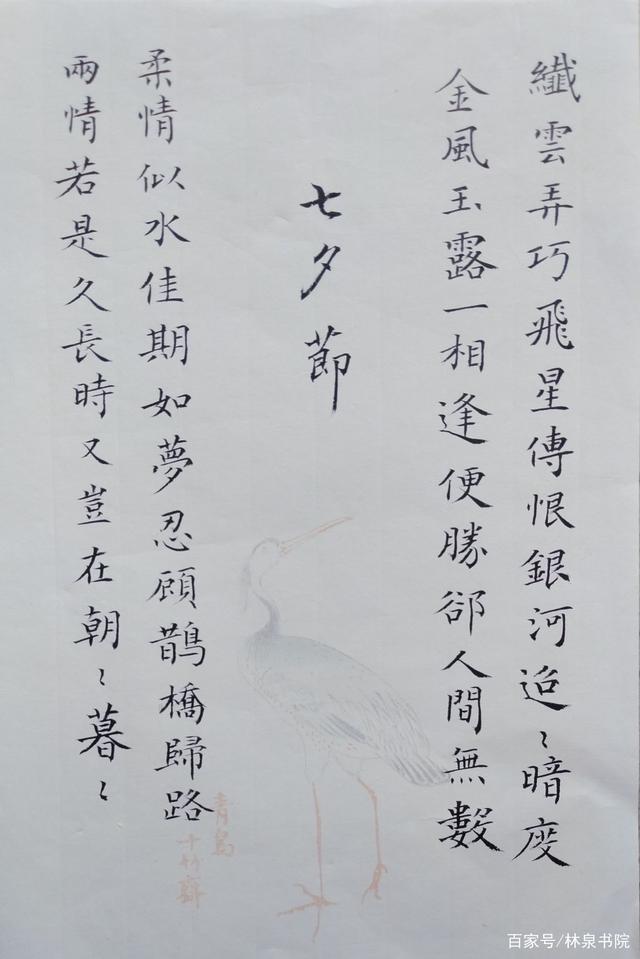 纖雲弄巧飛星傳恨銀河迢〻暗度
金風玉露一相逢便勝卻人間無數
七夕節
柔情似水佳期如夢忍顧鵲橋歸路
兩情若是久長時又豈在朝〻暮〻
青鳥
十竹齋
百家号/林泉书院